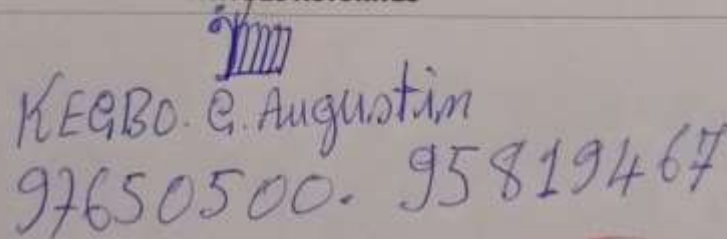 KEGBO. G. Augustin
97650500. 95819467